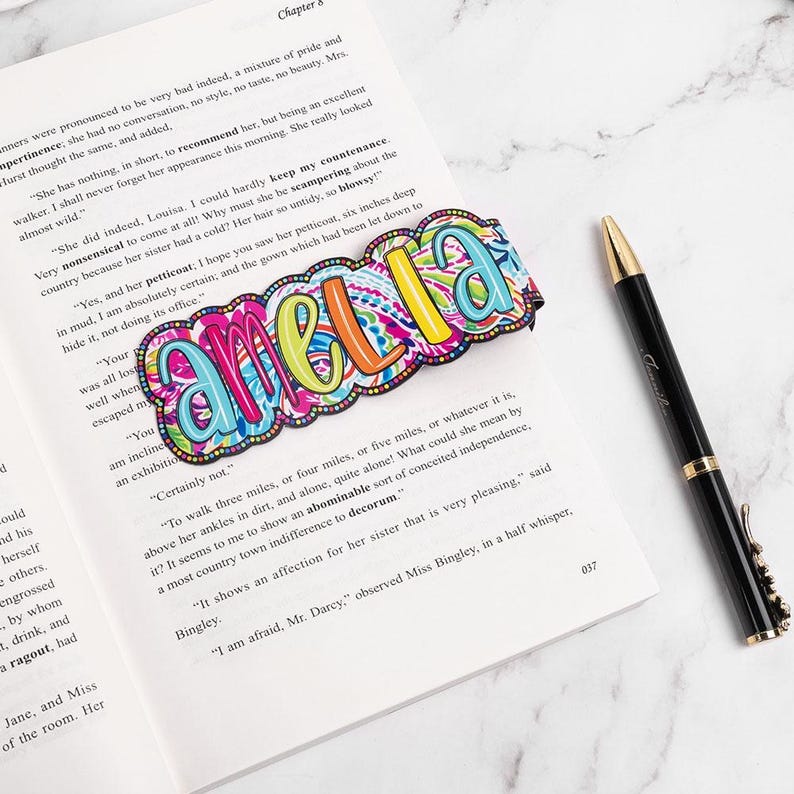 Chapter 8
nners were pronounced to be very bad indeed, a mixture of pride and
mpertinence; she had no conversation, no style, no taste, no beauty. Mrs.
Hurst thought the same, and added,
“She has nothing, in short, to recommend her, but being an excellent
walker. I shall never forget her appearance this morning. She really looked
almost wild.”
“She did indeed, Louisa. I could hardly keep my countenance.
Very nonsensical to come at all! Why must she be scampering about the
country because her sister had a cold? Her hair so untidy, so blowsy!”
“Yes, and her petticoat; I hope you saw her petticoat, six inches deep
in mud, I am absolutely certain; and the gown which had been let down to
hide it, not doing its office.”
“Your
was all lost
well when
escaped my
“You
am incline
an exhibition
amelia
“Certainly not.”
“To walk three miles, or four miles, or five miles, or whatever it is,
above her ankles in dirt, and alone, quite alone! What could she mean by
it? It seems to me to show an abominable sort of conceited independence,
a most country town indifference to decorum.”
“It shows an affection for her sister that is very pleasing,” said
Bingley.
“I am afraid, Mr. Darcy,” observed Miss Bingley, in a half whisper,
037
ould
nd his
herself
others.
engrossed
, by whom
t, drink, and
a ragout, had
Jane, and Miss
of the room. Her
Jennifer